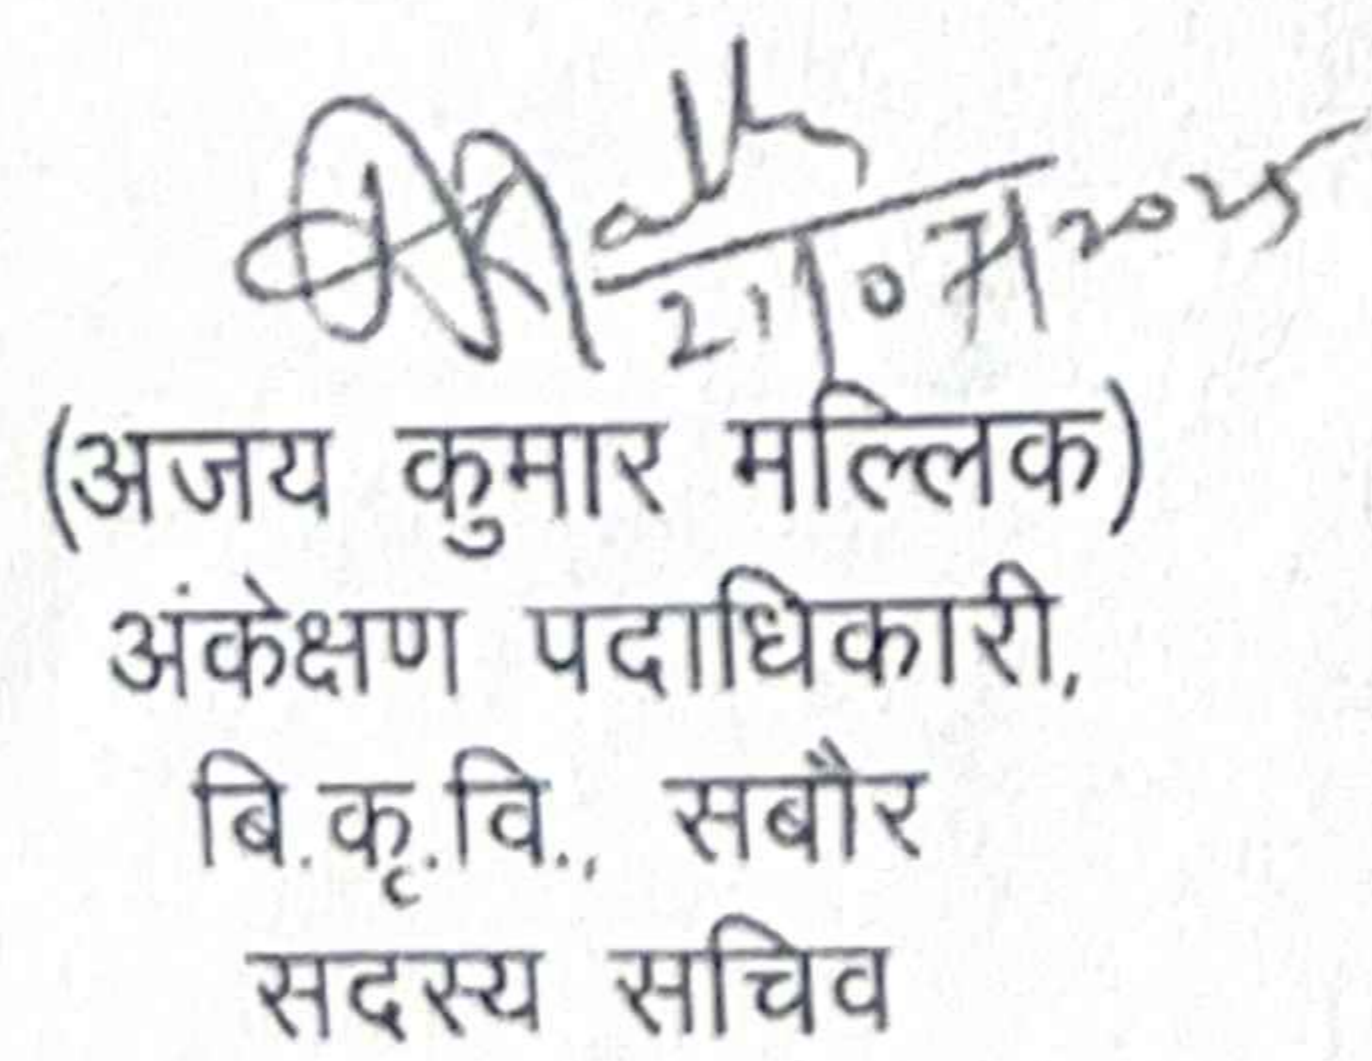 21/07/2025
(अजय कुमार मल्लिक)
अंकेक्षण पदाधिकारी,
बि.कृ.वि., सबौर
सदस्य सचिव